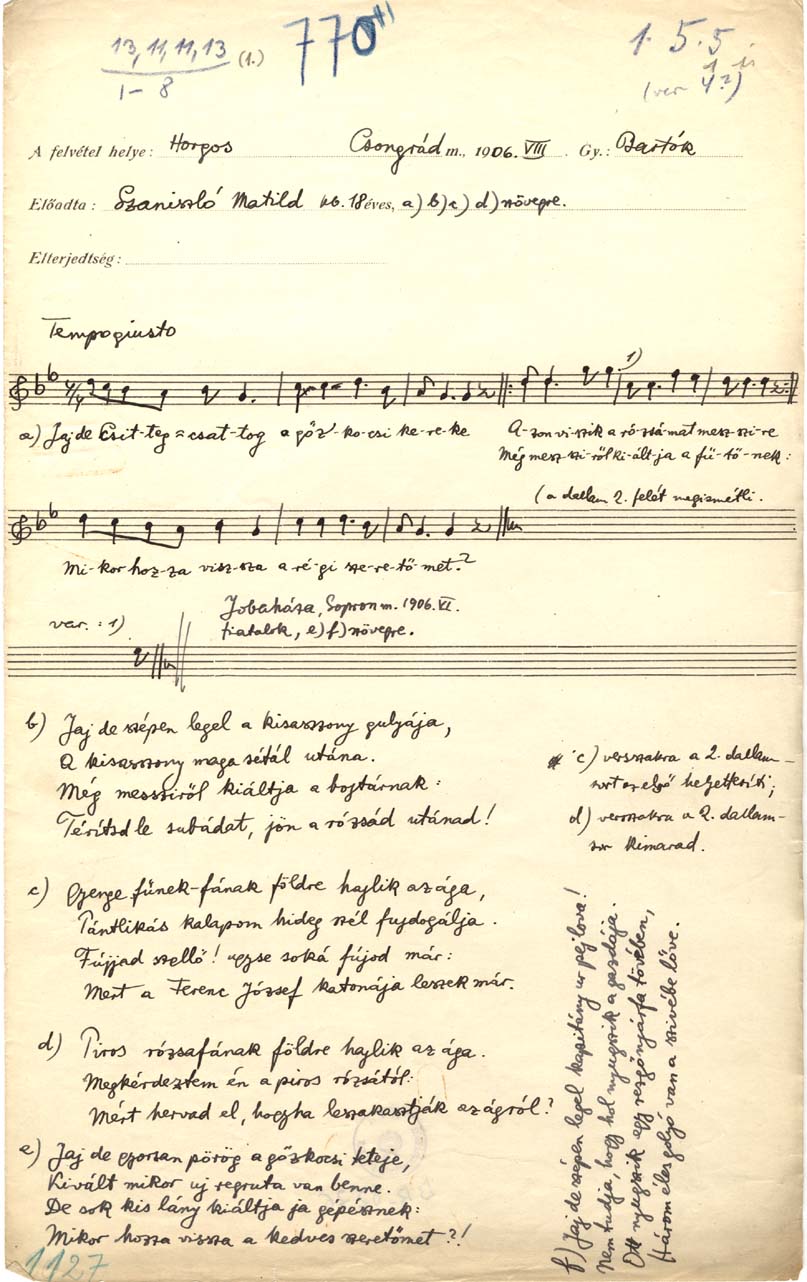 13, 11, 11, 13 (1.)
1 - 8
770
1. 5. 5
1 is
(var 4?)
A felvétel helye: Horgos Csongrád m., 1906. VIII. Gy.: Bartók
Előadta: Szaniszló Matild kb. 18 éves, a) b) c) d) szövegre.
Elterjedtség:
Tempo giusto
1)
a) Jaj de Csit-teg-csat-tog a gőz-ko-csi ke-re-ke A-zon vi-szik a ró-zsá-mat mesz-szi-re
Még mesz-szi-ről ki-ált-ja a fű-tő-nek:
(a dallam 2. felét megismétli.
Mi-kor hoz-za visz-sza a ré-gi sze-re-tő-met?
var.: 1)
Jobaháza, Sopron m. 1906. VI.
fiatalok, e) f) szövegre.
b) Jaj de szépen legel a kisasszony gulyája,
A kisasszony maga sétál utána.
Még messziről kiáltja a bojtárnak:
Térítsd le subádat, jön a rózsád utánad!
c) versszakra a 2. dallam-
sort az első helyettesíti;
d) versszakra a 2. dallam-
sor kimarad.
c) Gyenge fűnek-fának földre hajlik az ága,
Pántlikás kalapom hideg szél fujdogálja.
Fújjad szellő! ugyse soká fújod már:
Mert a Ferenc József katonája leszek már.
d) Piros rózsafának földre hajlik az ága.
Megkérdeztem én a piros rózsától:
Mért hervad el, hogyha leszakasztják az ágról?
e) Jaj de gyorsan pörög a gőzkocsi teteje,
Kivált mikor uj regruta van benne.
De sok kis lány kiáltja ja gépésznek:
Mikor hozza vissza a kedves szeretőmet?!
f) Jaj de szépen legel kapitány ur pejlova!
Nem tudja, hogy hol nyugszik a gazdája.
Ott nyugszik egy rezgőnyárfa tövében,
Három éles golyó van a szivébe lőve.
1127